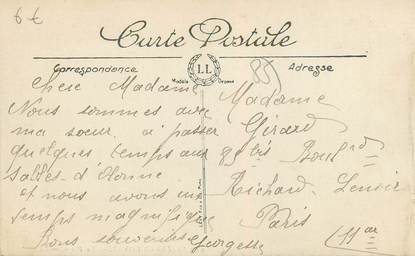 6 €
Carte Postale
Correspondance
Adresse
LL
Modèle Déposé
85
Chère Madame
Nous sommes avec
ma sœur à passer
quelques temps aux
sables d'Olonne
et nous avons un
temps magnifique
Bons souvenirs
Georgette
Madame
Girard
bis Boulrd
Richard Lenoir
Paris
(11me